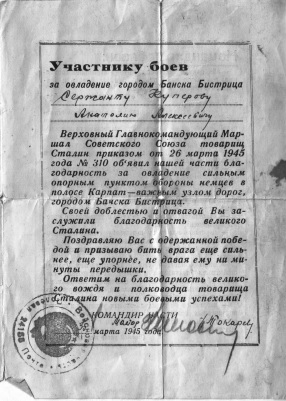 Участнику боев
за овладение городом Банска Бистрица
Сержанту Куперову
Анатолию Алексеевичу
Верховный Главнокомандующий Мар-
шал Советского Союза товарищ
Сталин приказом от 26 марта 1945
года № 310 об'явил нашей части бла-
годарность за овладение сильным
опорным пунктом обороны немцев в
полосе Карпат—важным узлом дорог,
городом Банска Бистрица.
Своей доблестью и отвагой Вы за-
служили благодарность великого
Сталина.
Поздравляю Вас с одержанной побе-
дой и призываю бить врага еще силь-
нее, еще упорнее, не давая ему на ми-
нуты передышки.
Ответим на благодарность велико-
го вождя и полководца товарища
Сталина новыми боевыми успехами!
КОМАНДИР ЧАСТИ
Майор
марта 1945 года